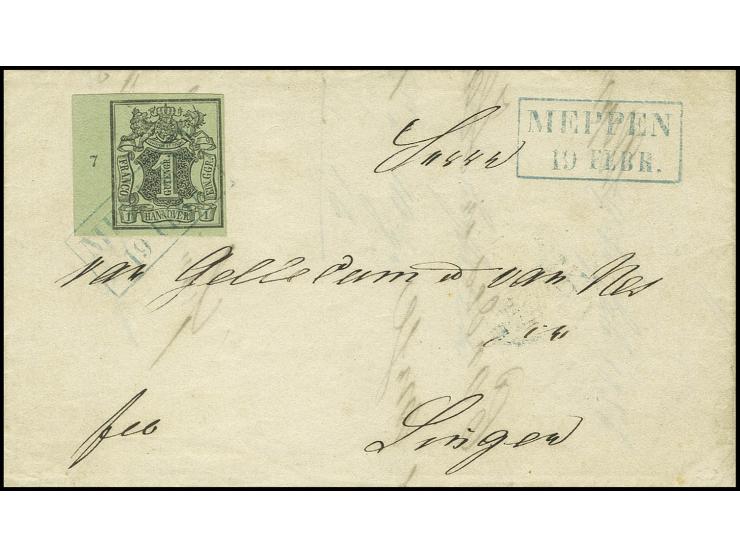 MEPPEN
19 FEBR.
7
FRANCO
1
GUTENGR.
EIN GGR.
1 HANNOVER 1
19
Herrn
van
van Nes
in
Lingen